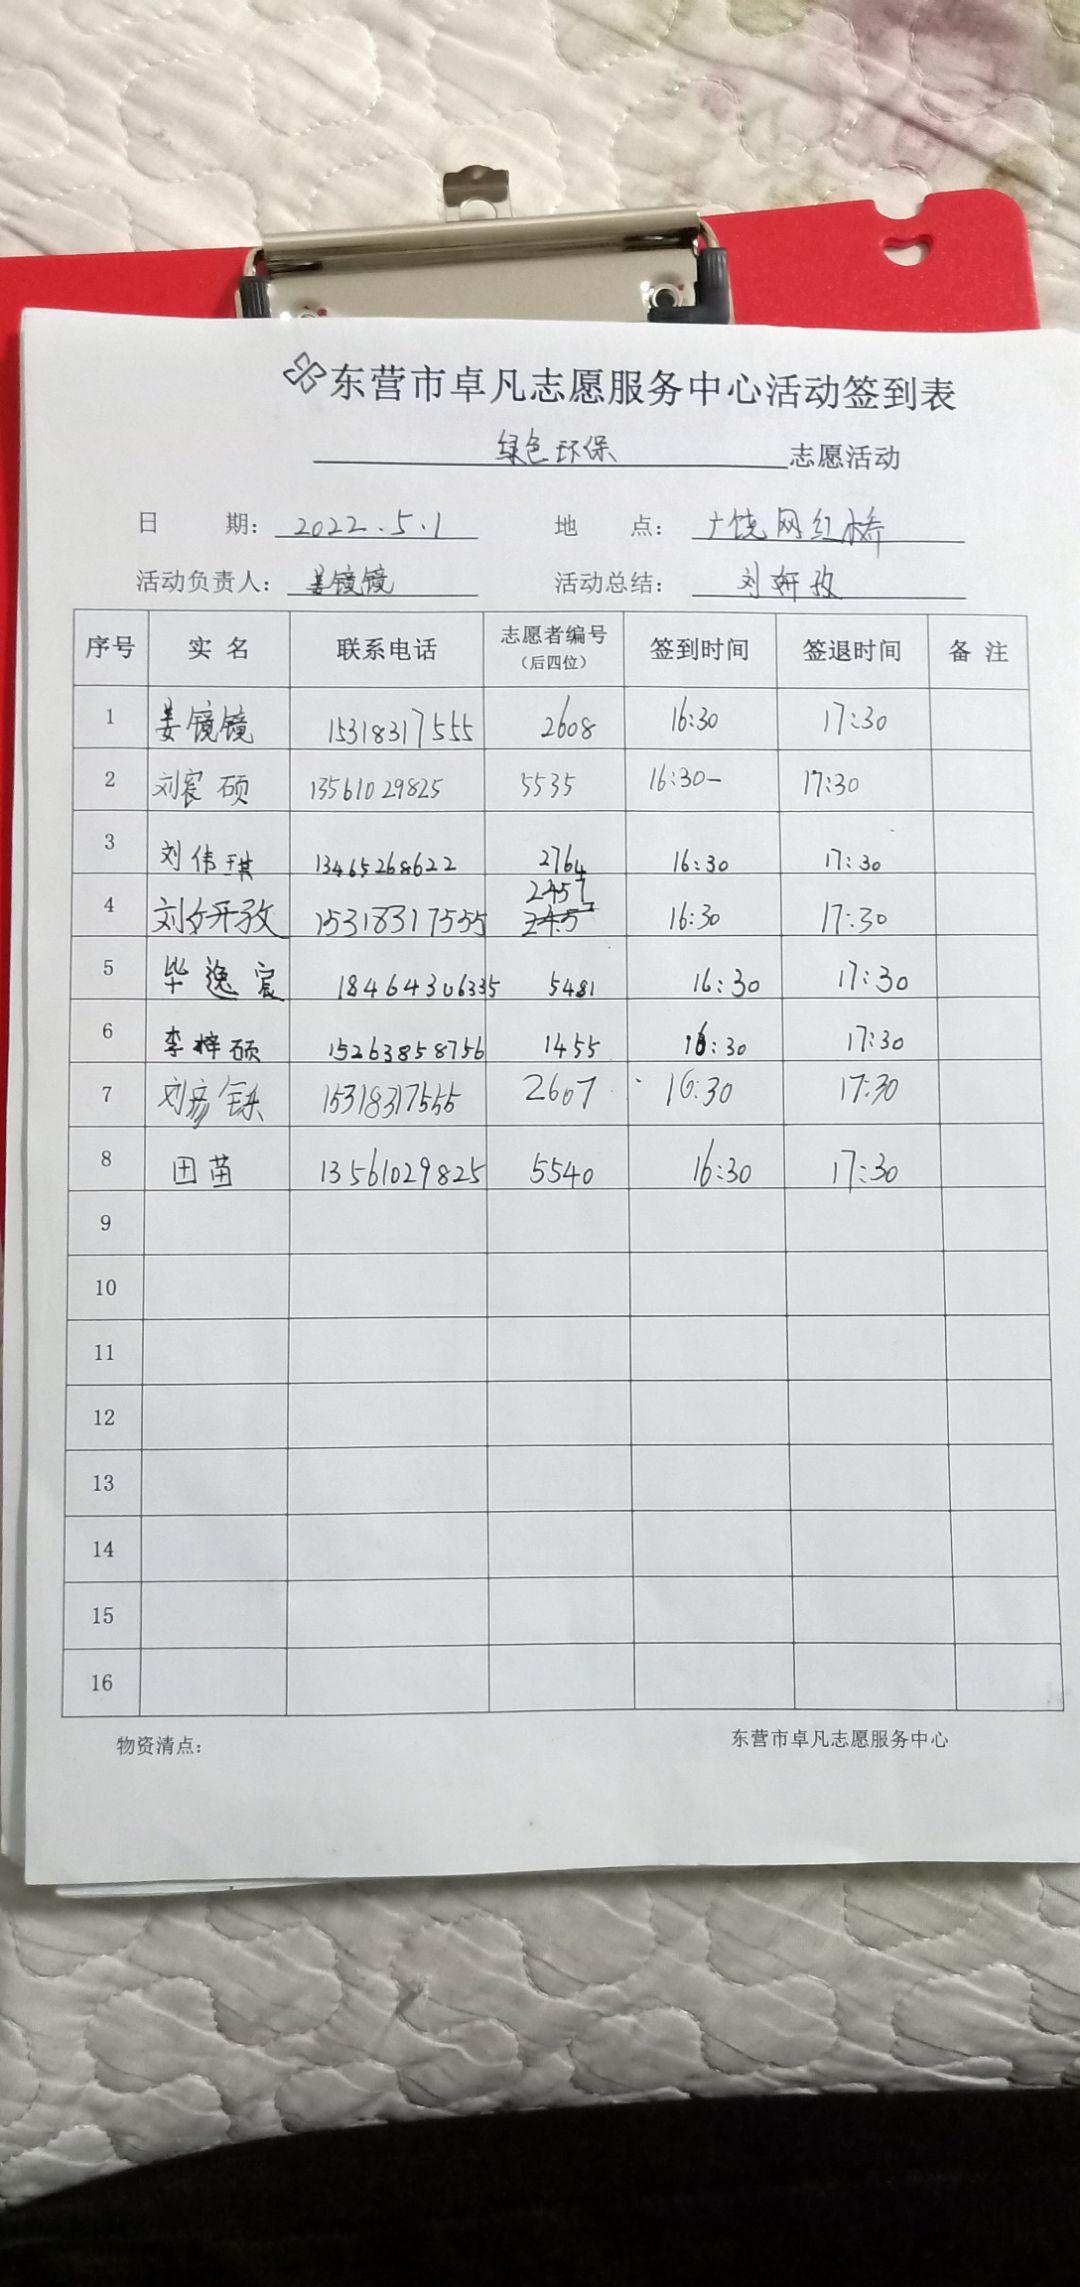 东营市卓凡志愿服务中心活动签到表
绿色环保 志愿活动
日 期: 2022.5.1 地 点: 广饶网红桥
活动负责人: 姜镜镜 活动总结: 刘妍孜
序号 实名 联系电话 志愿者编号（后四位） 签到时间 签退时间 备注
1 姜镜镜 15318317555 2608 16:30 17:30
2 刘宸硕 13561029825 5535 16:30- 17:30
3 刘伟琪 13465268622 2764 16:30 17:30
4 刘妍孜 15318317555 16:30 17:30
5 毕逸宸 18464306335 5481 16:30 17:30
6 李梓硕 15263858756 1455 16:30 17:30
7 刘彦铄 15318317555 2607 16:30 17:30
8 田苗 13561029825 5540 16:30 17:30
9
10
11
12
13
14
15
16
物资清点: 东营市卓凡志愿服务中心